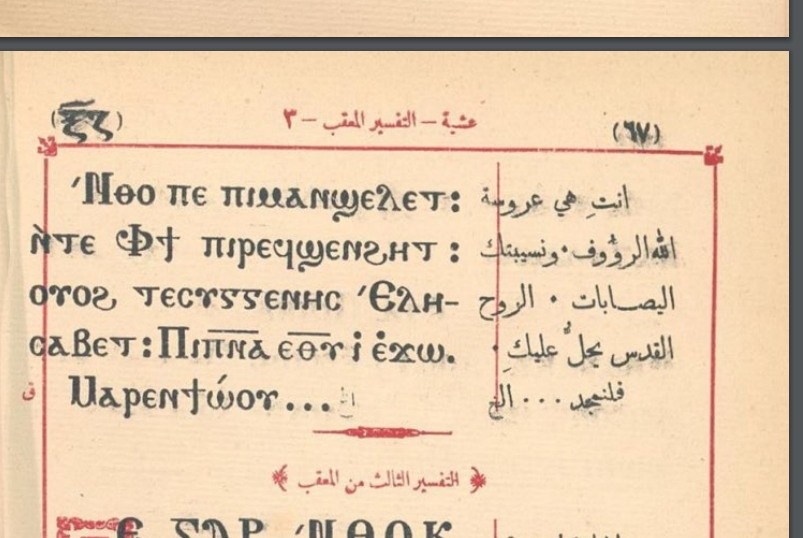 (ⲝ̅ⲍ̅) عشية – التفسير المعقب – ٣ (٦٧)
ⲚⲐⲞ ⲡⲉ ⲡⲓⲙⲁⲛϣⲉⲗⲉⲧ: انتِ هي عروسة
ⲛ̀ⲧⲉ Ⲫϯ ⲡⲓⲣⲉϥϣⲉⲛϩⲏⲧ : الله الرؤوف · ونسيبتك
ⲟⲩⲟϩ ⲧⲉⲥⲩⲅⲅⲉⲛⲏⲥ ̀Ⲉⲗⲏ- اليصابات · الروح
ⲥⲁⲃⲉⲧ: Ⲡⲓⲡ̅ⲛ̅ⲁ̅ ⲉ̅ⲑ̅ⲩ̅ ⲓ̀ ⲉ̀ϫⲱ. القدس يحلُّ عليكِ ·
ق Ⲙⲁⲣⲉⲛϯⲱ̀ⲟⲩ... الخ فلنمجد ... الخ
﴿ التفسير الثالث من المعقب ﴾
Ⲉ ⲄⲀⲢ ̀ⲚⲐⲞⲔ